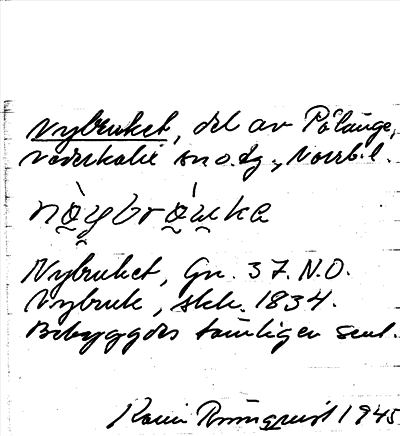 Nybruket, del av Pålänge,
Nederkalix sn o. tg., Norrb. l.
nö̀ybrò̰ṵka
Nybruket, Gn. 37. N.O.
Nybruk, skh. 1834.
Bebyggdes tämligen sent.
Karin Rönnquist 1945